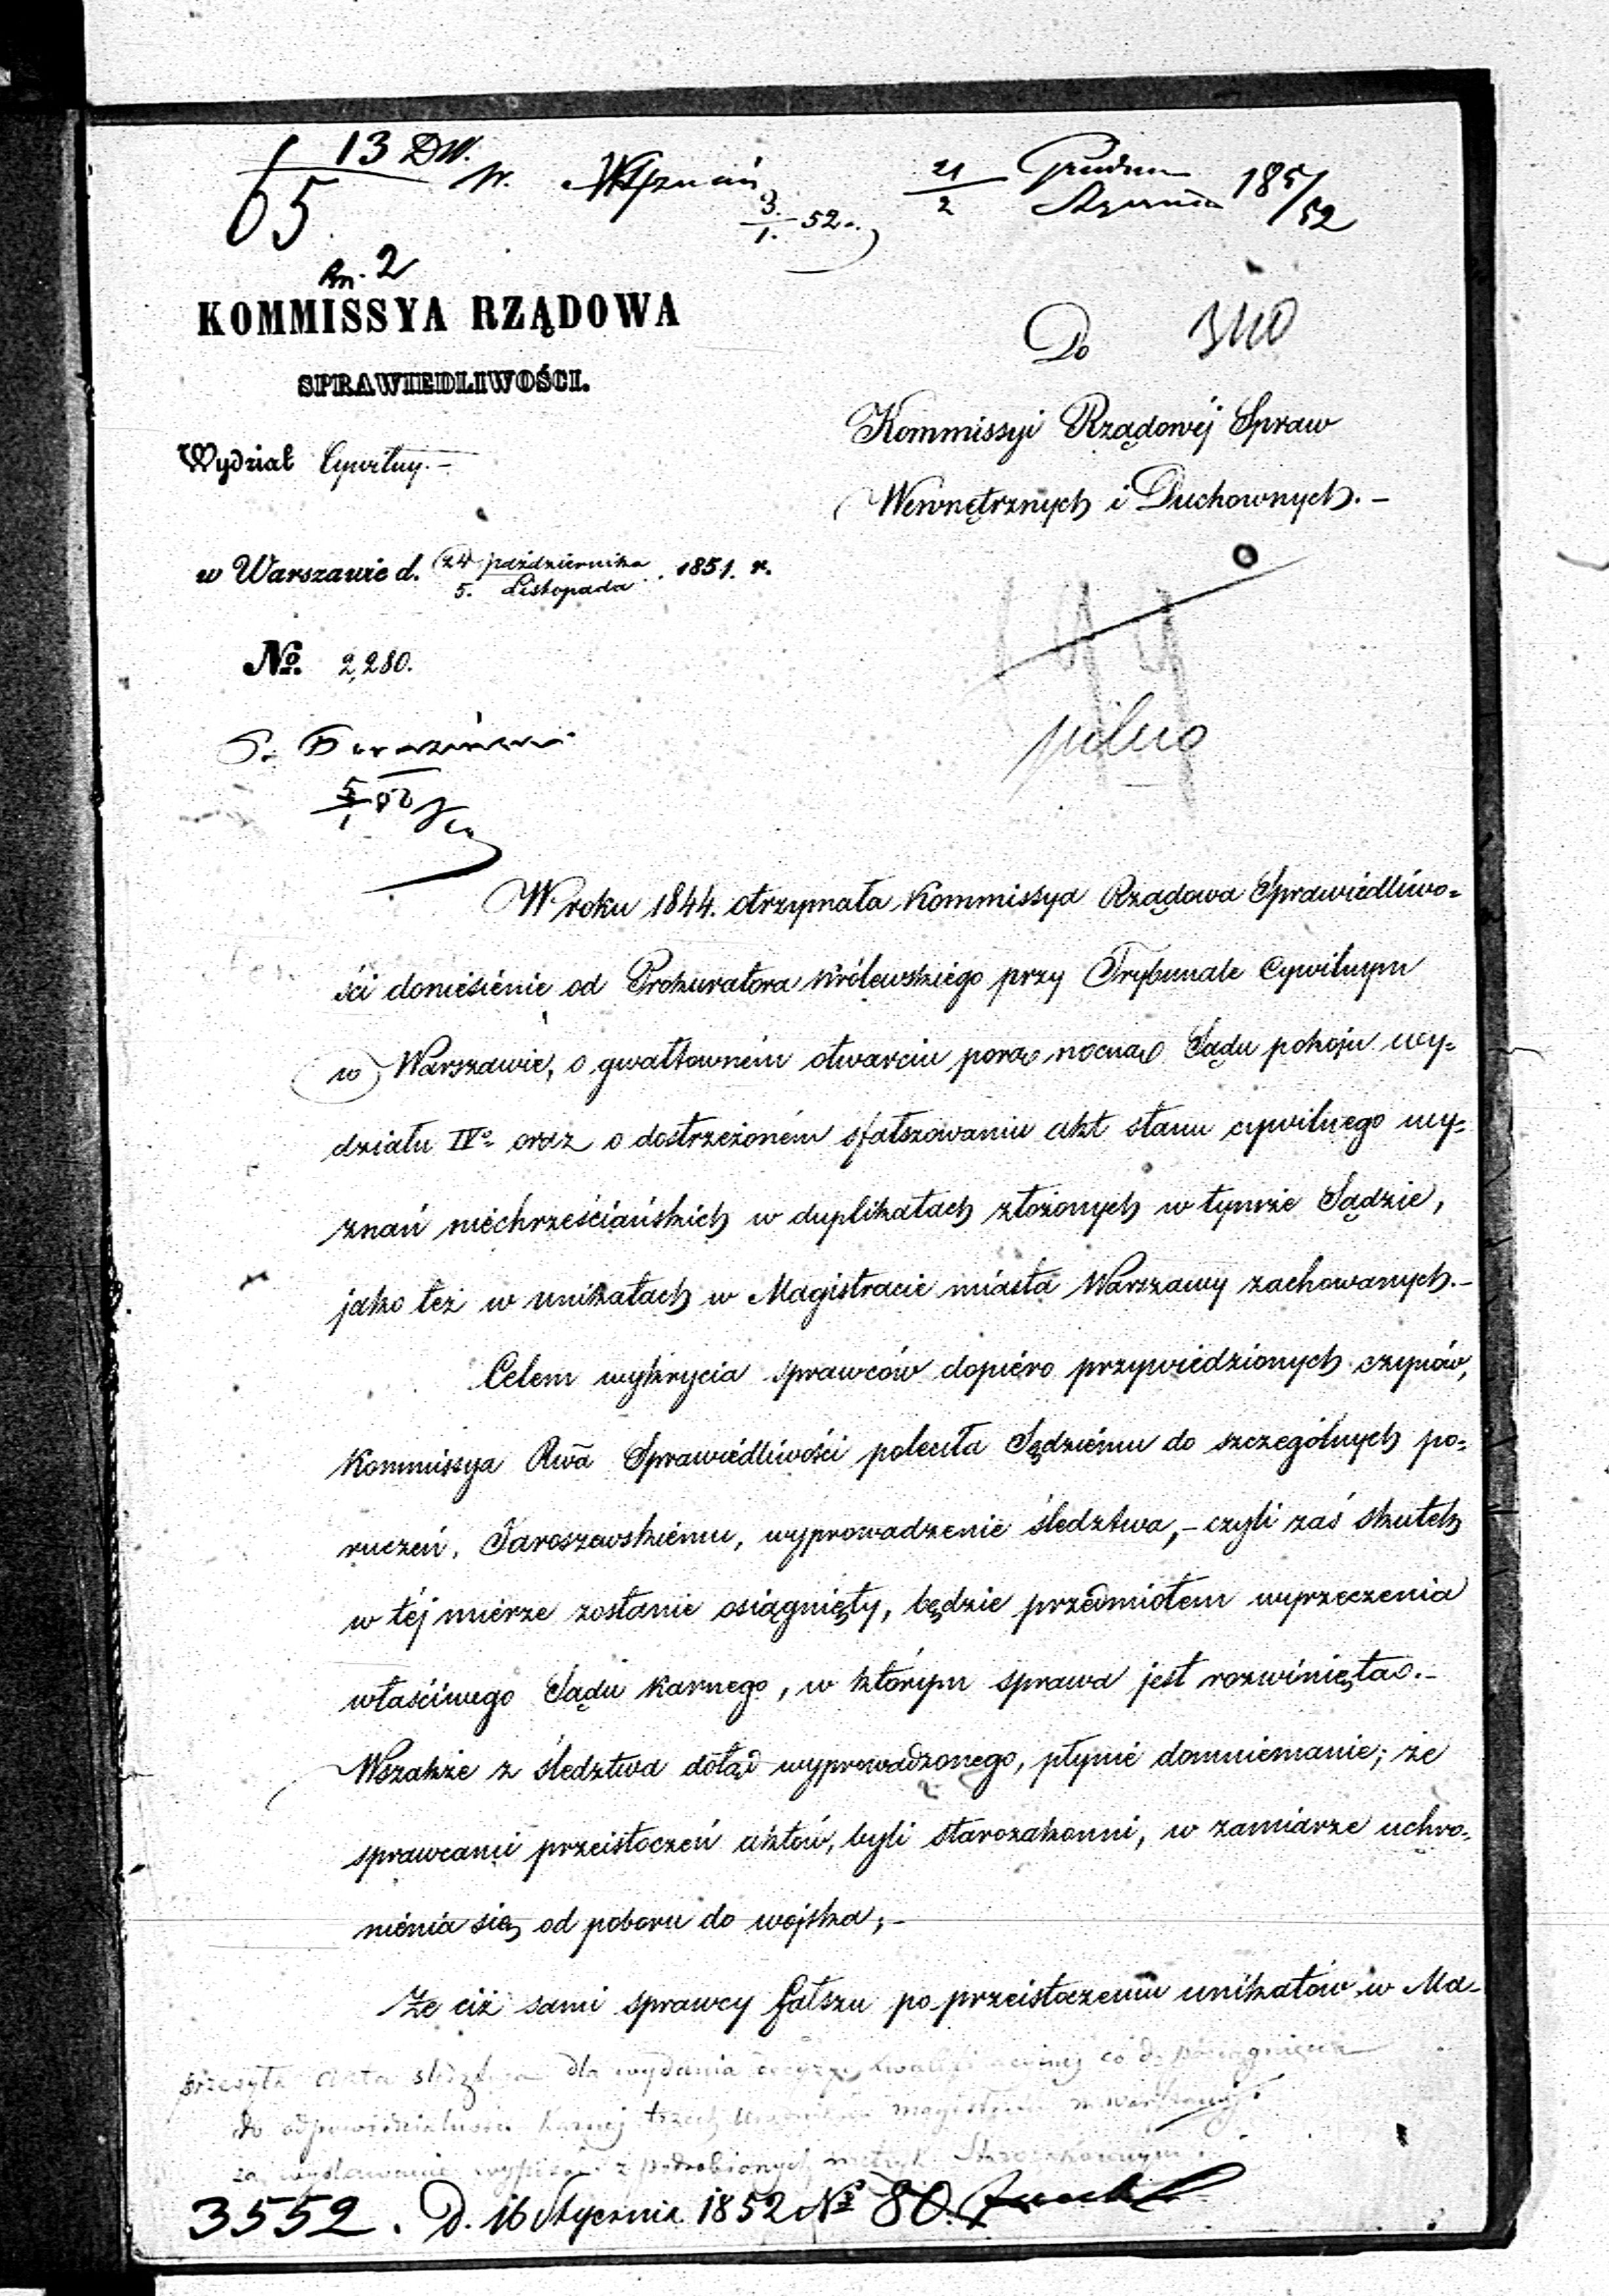 13 DW.
65
W.
3/1. 52.
21/2 Grudnia Stycznia 1851/52
2
KOMMISSYA RZĄDOWA
SPRAWIEDLIWOŚCI.
Do 340
Kommissyi Rządowéj Spraw
Wewnętrznych i Duchownych. –
Wydział Cywilny. –
w Warszawie d. 24 października 5. Listopada 1851. r.
199
No. 2,280.
pilno
5/1
W roku 1844. otrzymała Kommissya Rządowa Sprawiedliwo=
ści doniesienie od Prokuratora Królewskiego przy Trybunale Cywilnym
w Warszawie, o gwałtowném otwarciu porą nocną Sądu pokoju wy=
działu IVo oraz o dostrzeżoném sfałszowaniu akt stanu cywilnego wy=
znań niechrześciańskich w duplikatach złożonych w tymże Sądzie,
jako też w unikatach w Magistracie miasta Warszawy zachowanych. –
Celem wykrycia sprawców dopiéro przywiedzionych czynów,
Kommissya Rwa Sprawiedliwości poleciła Sędziemu do szczególnych po=
ruczeń, Jaroszewskiému, wyprowadzenie śledztwa, – czyli zaś skutek
w téj mierze zostanie osiągnięty, będzie przedmiotem wyrzeczenia
właściwego Sądu karnego, w którym sprawa jest rozwiniętą. –
Wszakże z śledztwa dotąd wyprowadzonego, płynie domniemanie; że
sprawcami przeistoczeń aktów, byli starozakonni, w zamiarze uchro=
nienia się od poboru do wojska; –
Że ciż sami sprawcy fałszu po przeistoczeniu unikatów w Ma=
przesyła Akta śledztwa dla wydania co do pociągnięcia
do odpowiedzialności karnéj trzech Urzędników magistratu m. Warszawy
za wydawanie wypisów z podrobionych metryk Starozakonnym
3552. D. 16 Stycznia 1852 No 80.